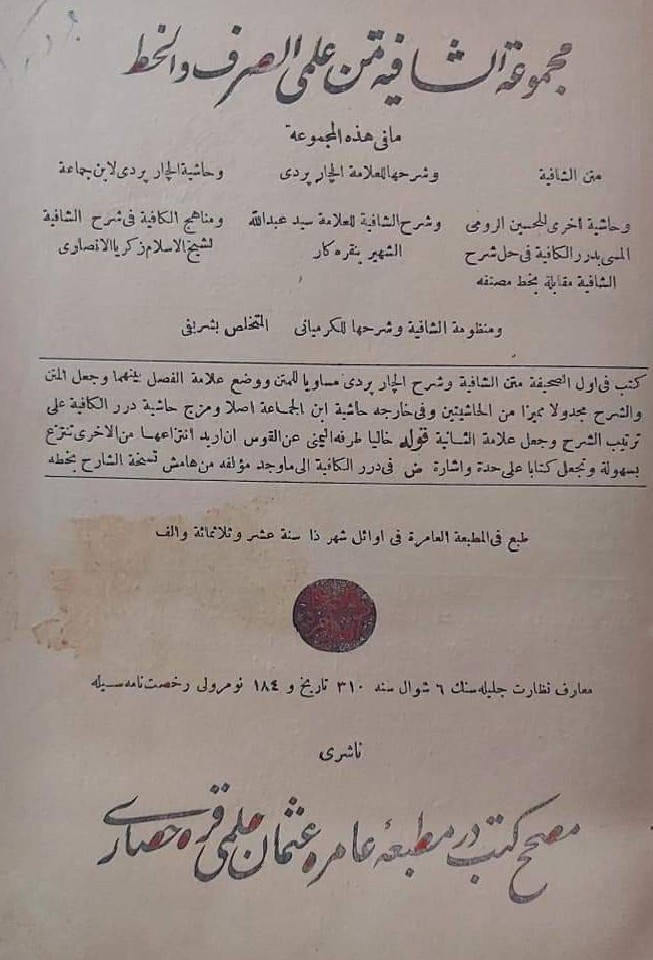 مجموعة الشافيه من علمى الصرف والخط
مافى هذه المجموعة
متن الشافية وشرحها للعلامة الچار پردى وحاشية الچار پردى لابن جماعة
وحاشية اخرى للمحسين الرومى وشرح الشافية للعلامة سيد عبدالله ومناهج الكافية فى شرح الشافية
المسمى بدرر الكافية فى حل شرح الشهير بنقره كار لشيخ الاسلام زكريا الانصارى
الشافية مقابلة بخط مصنفه
ومنظومة الشافية وشرحها للكرميانى المتخلص بشريفى
كتب فى اول الصحيفة متن الشافية وشرح الچار پردى مساويا للمتن ووضع علامة الفصل بينهما وجعل المتن
والشرح مجدولا مميزا من الحاشيتين وفى خارجه حاشية ابن الجماعة اصلا ومزج حاشية درر الكافية على
ترتيب الشرح وجعل علامة الثانية قوله خاليا طرفه اليمنى عن القوس ان اريد انتزاعها من الاخرى تنتزع
بسهولة وتجعل كتابا على حدة واشارة ض فى درر الكافية الى ما وجد مؤلفه من هامش نسخة الشارح بخطه
طبع فى المطبعة العامرة فى اوائل شهر ذا سنة عشر وثلاثمائة والف
معارف نظارت جليله سنك ٦ شوال سنه ٣١٠ تاريخ و ١٨٤ نومرولى رخصت نامه سيله
ناشرى
مصحح كتب در مطبعۀ عامره عثمان حلمى قره حصارى